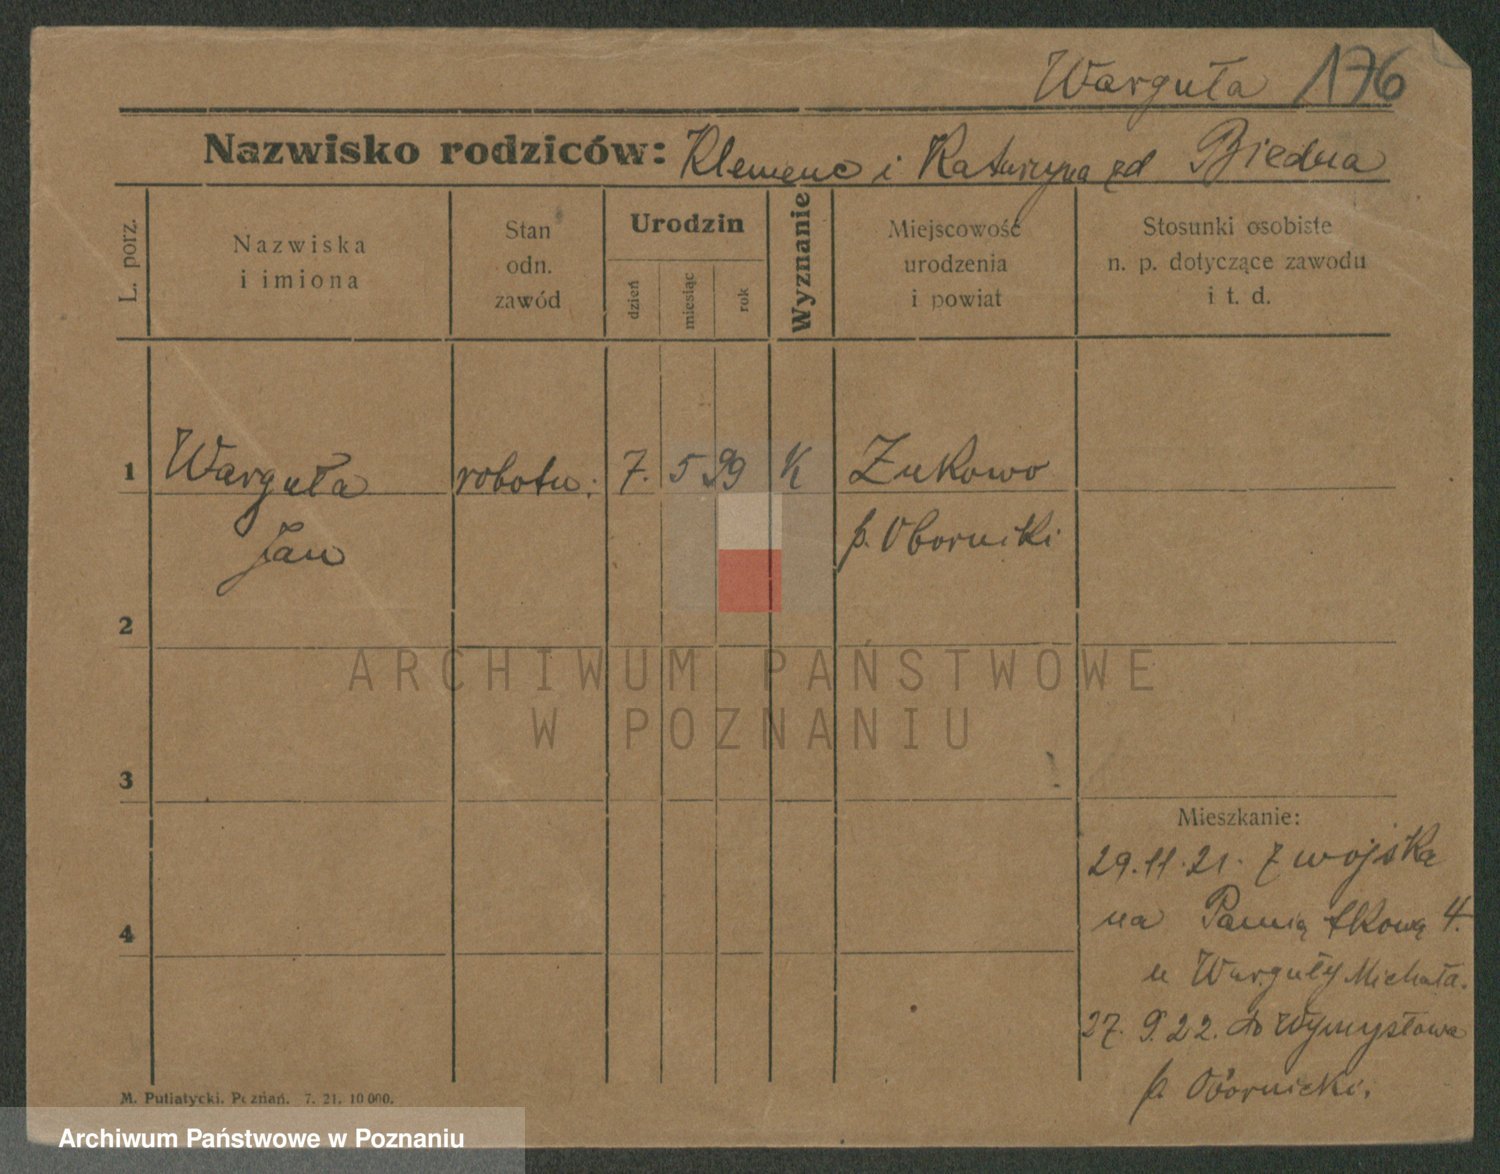 Warguła 176
Nazwisko rodziców: Klemenc i Katarzyna zd Biedna
L. porz.
Nazwiska
i imiona
Stan
odn.
zawód
Urodzin
dzień
miesiąc
rok
Wyznanie
Miejscowość
urodzenia
i powiat
Stosunki osobiste
n. p. dotyczące zawodu
i t. d.
1 Warguła robotn: 7. 5 99 K Żukowo
Jan p. Oborniki
2
ARCHIWUM PAŃSTWOWE
W POZNANIU
3
Mieszkanie:
29.11.21. z wojska
na Pamiątkową 4.
4
u Warguły Michała.
27. 9. 22. do Wymysłowa
p. Obornicki.
M. Putiatycki. Poznań. 7. 21. 10 000.
Archiwum Państwowe w Poznaniu